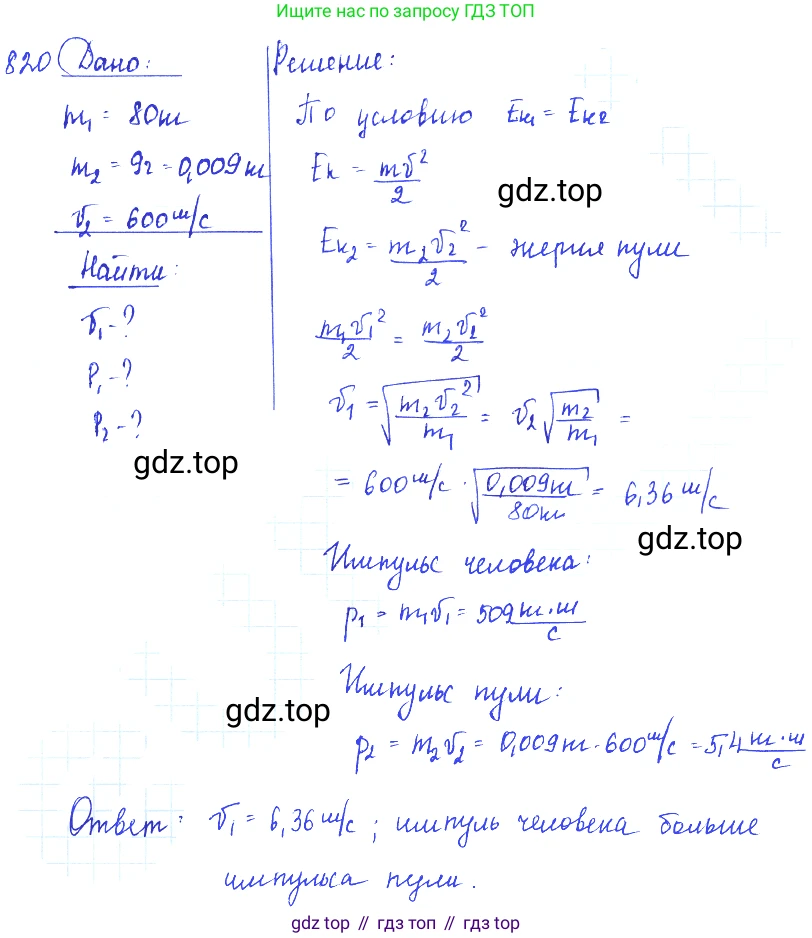 Ищите нас по запросу ГДЗ ТОП
820 Дано:
m₁ = 80кг
m₂ = 9г = 0,009кг
v₂ = 600 м/с
Найти:
v₁ - ?
p₁ - ?
p₂ - ?
gdz.top
Решение:
По условию Eк₁ = Eк₂
Eк = mv²/2
gdz.top
Eк₂ = m₂v₂²/2 - энергия пули
m₁v₁²/2 = m₂v₂²/2
v₁ = √(m₂v₂²/m₁) = v₂ √(m₂/m₁) =
= 600 м/с · √(0,009кг/80кг) = 6,36 м/с
gdz.top
Импульс человека:
p₁ = m₁v₁ = 509 кг·м/с
Импульс пули:
gdz.top
p₂ = m₂v₂ = 0,009кг · 600 м/с = 5,4 кг·м/с
Ответ: v₁ = 6,36 м/с; импуль человека больше
импульса пули.
gdz.top // гдз топ // gdz.top // гдз топ